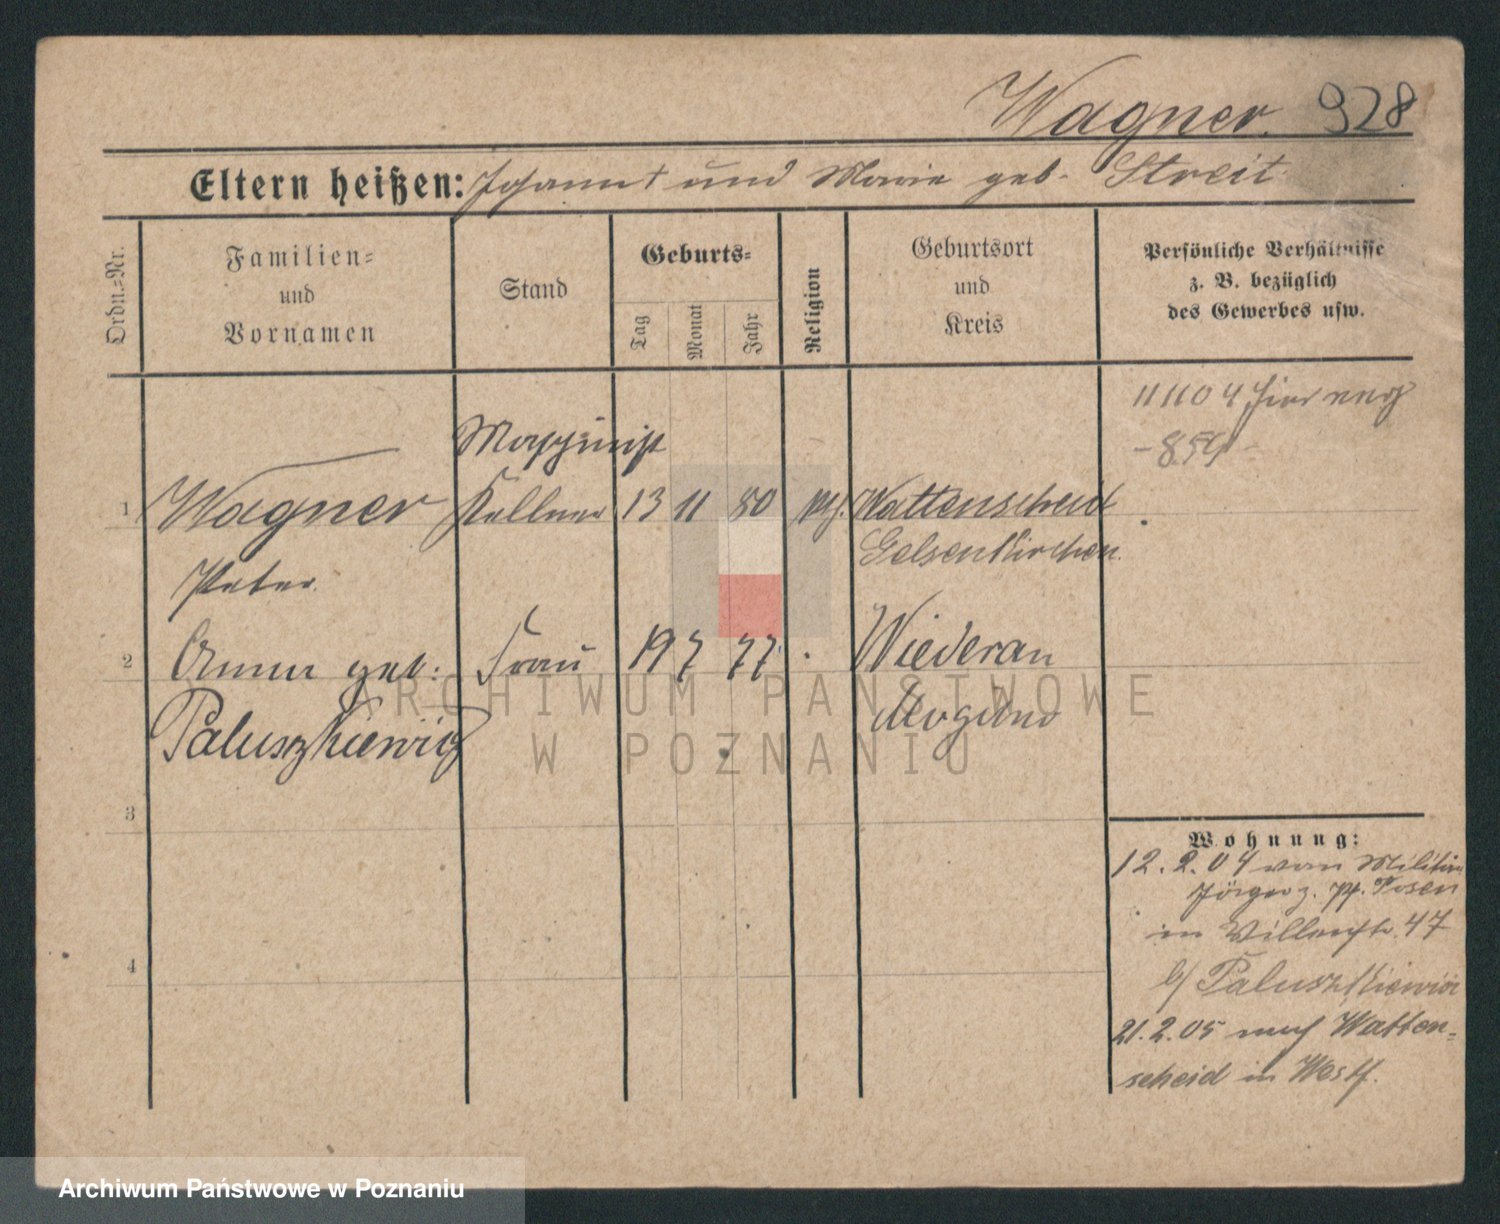 Wagner. 928
Eltern heißen: Johann † und Marie geb. Streit
Ordn.-Nr.
Familien-
und
Vornamen
Stand
Geburts-
Tag
Monat
Jahr
Religion
Geburtsort
und
Kreis
Persönliche Verhältnisse
z. B. bezüglich
des Gewerbes usw.
11 11 04 hier
- 859 -
Maschinist
1 Wagner Kellner 13 11 80 Wattenscheid
Gelsenkirchen.
Peter.
2 Anna geb: Frau 19 7 77 Wiederau
Paluszkiewicz Mogilno
3
4
Wohnung:
12.2.04 vom Militär
Jäger z. Pf. Posen
in 47
b/ Paluszkiewicz
21.2.05 nach Watten-
scheid in Westf.
ARCHIWUM PAŃSTWOWE
W POZNANIU
Archiwum Państwowe w Poznaniu